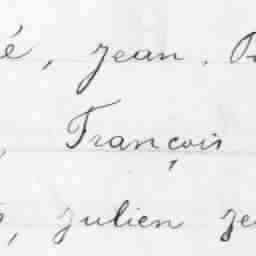 é, jean.
, François
, julien je